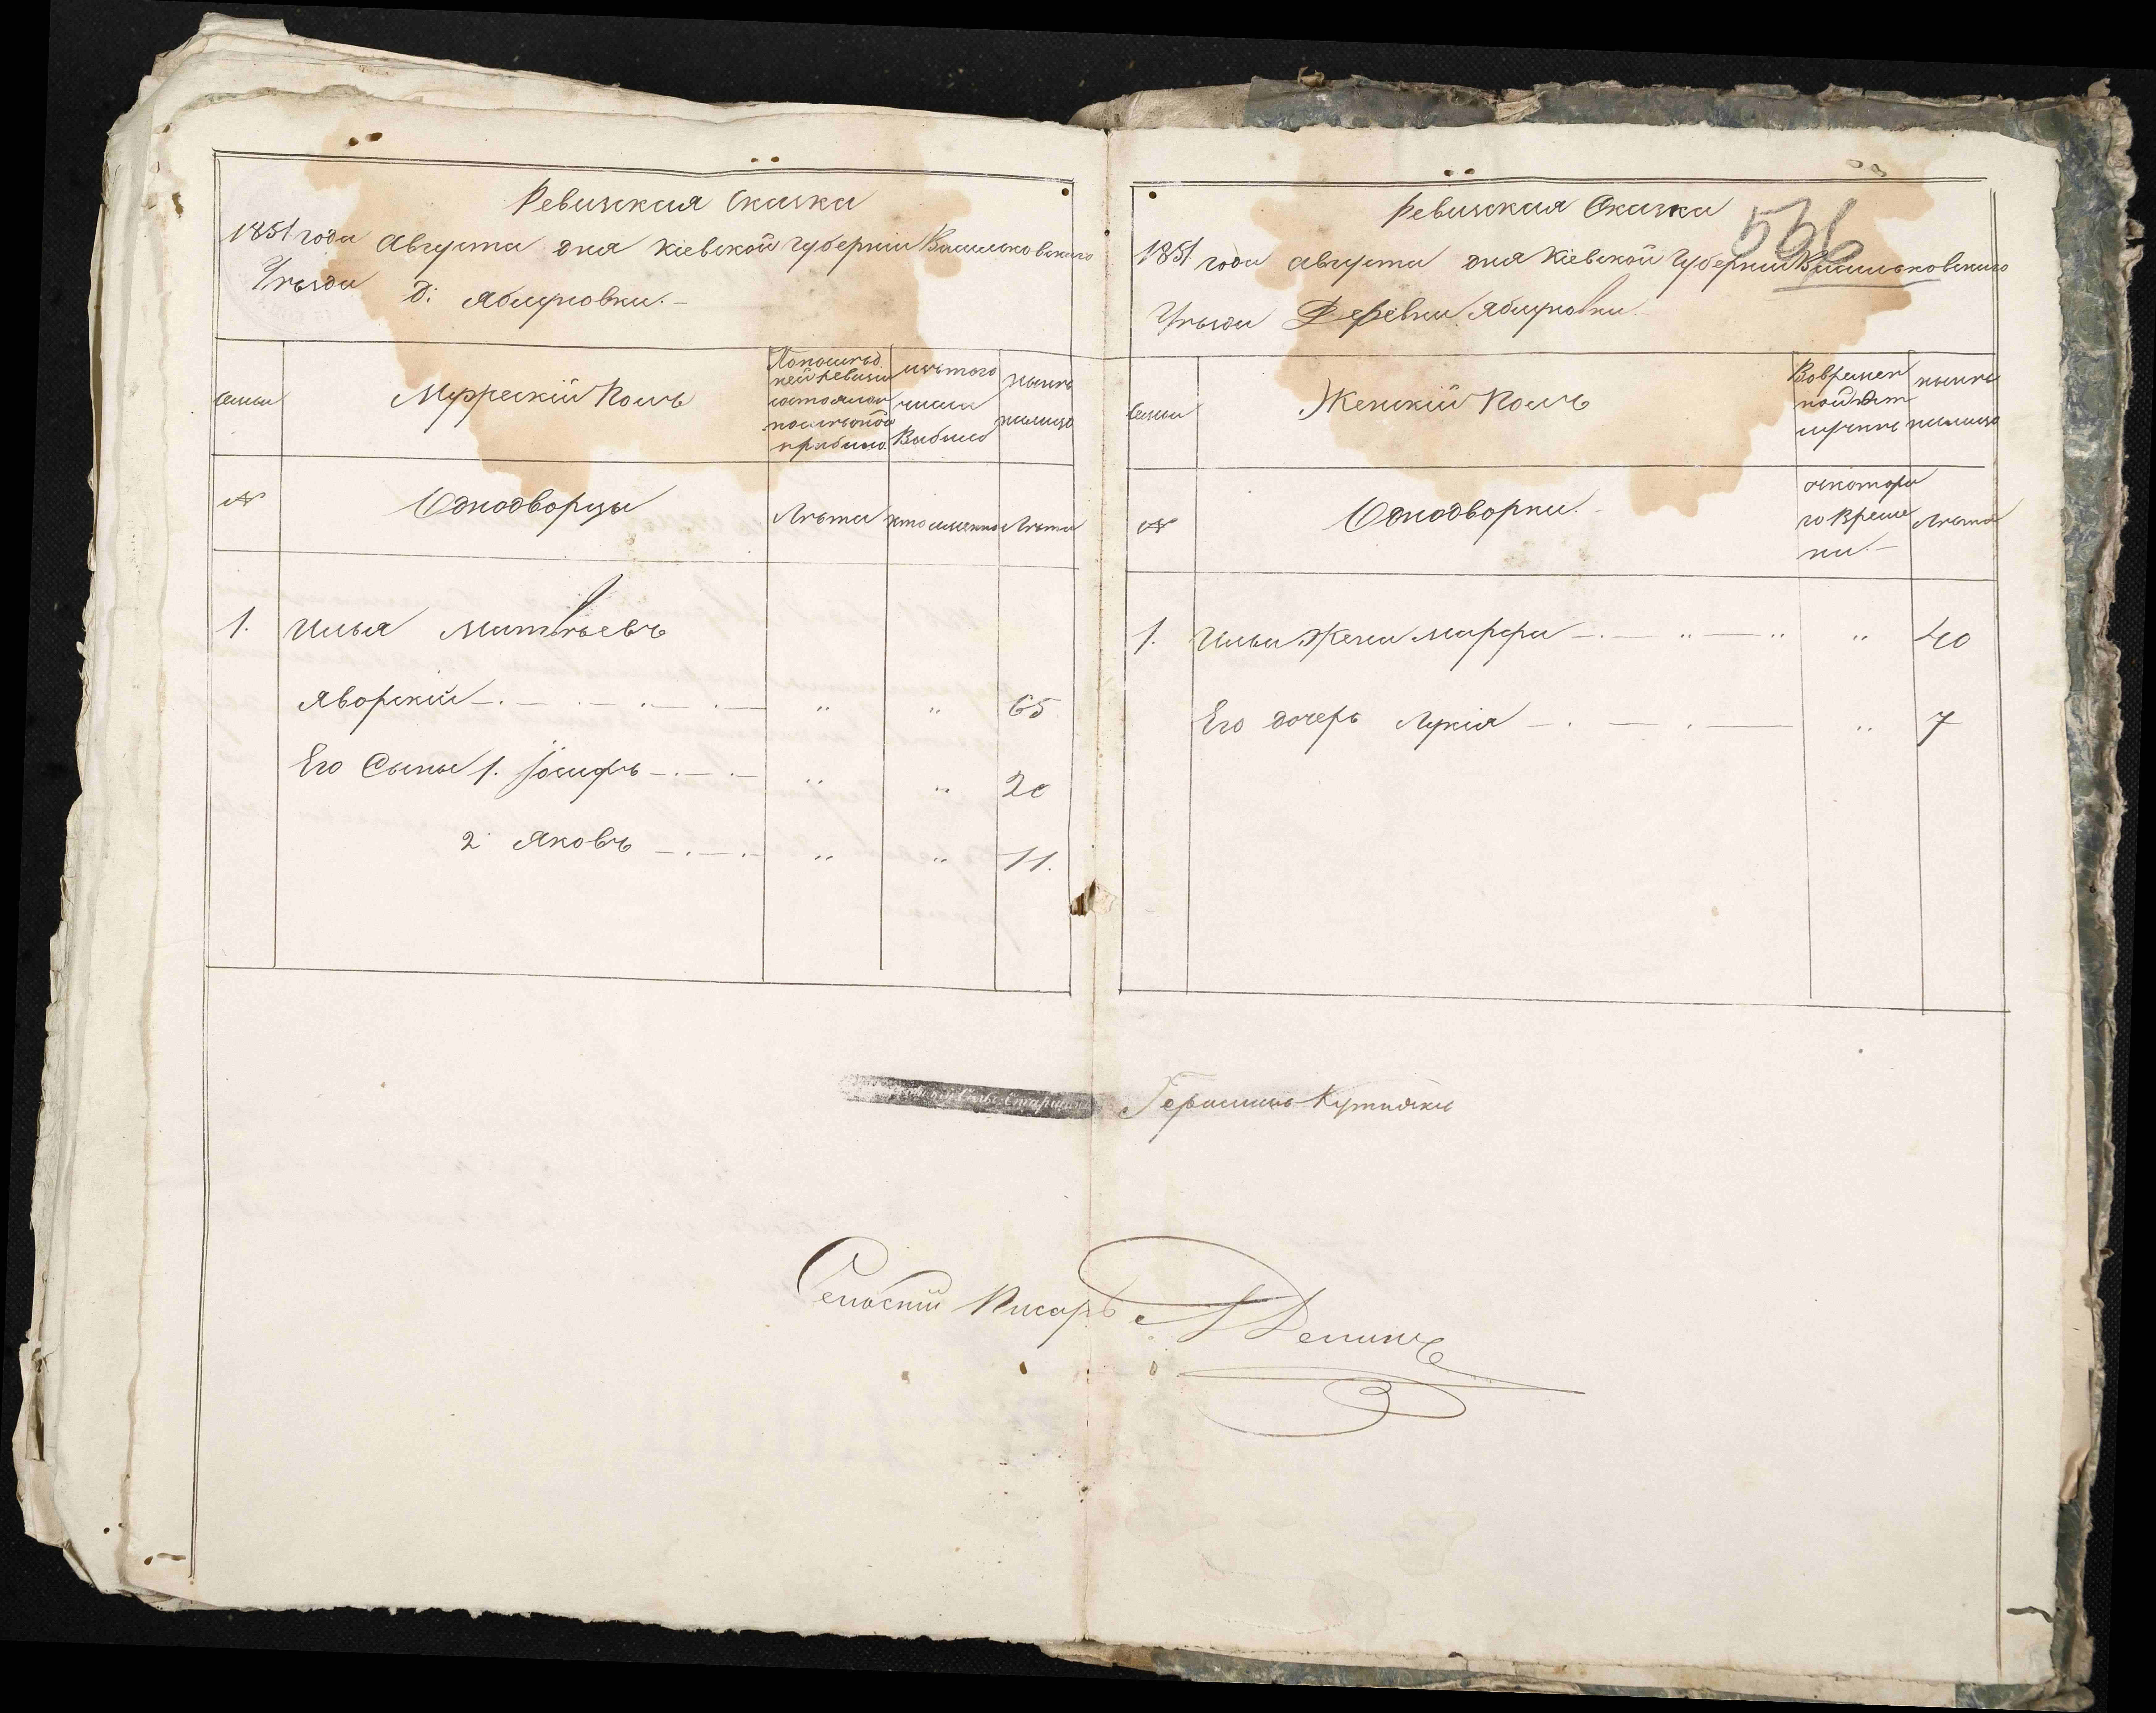 Ревизская Сказка
1851 года Августа дня Кіевской Губерніи Васильковскаго
Уѣзда Д: Яблуновки.-
семьи
Мужескій Полъ
По послѣд
ней ревизіи
состояло и
послѣ оной
прибыло.
изъ того
числа
Выбыло
нынѣ
налицо
№
Однодворцы
Лѣта
кто именно
Лѣта
1. Илья Матвѣевъ
Яворскій - " " 65
Его Сыны 1. Іосифъ - " " 20
2 Яковъ - " " 11.
Ревизская Сказка
556
1851 года Августа дня Кіевской Губерніи Васильковскаго
Уѣзда Деревни Яблуновки.
Семьи
Женскій Полъ
Во времен
ной от
лучкѣ
нынѣ
налицо
№
Однодворки.
съ котора
го време
ни.-
Лѣта
1. Ильи Жена Марфа - " 40
Его дочерь Лукія - " 7
Сельс. Старшина
Герасимъ
Сельскій Писарь